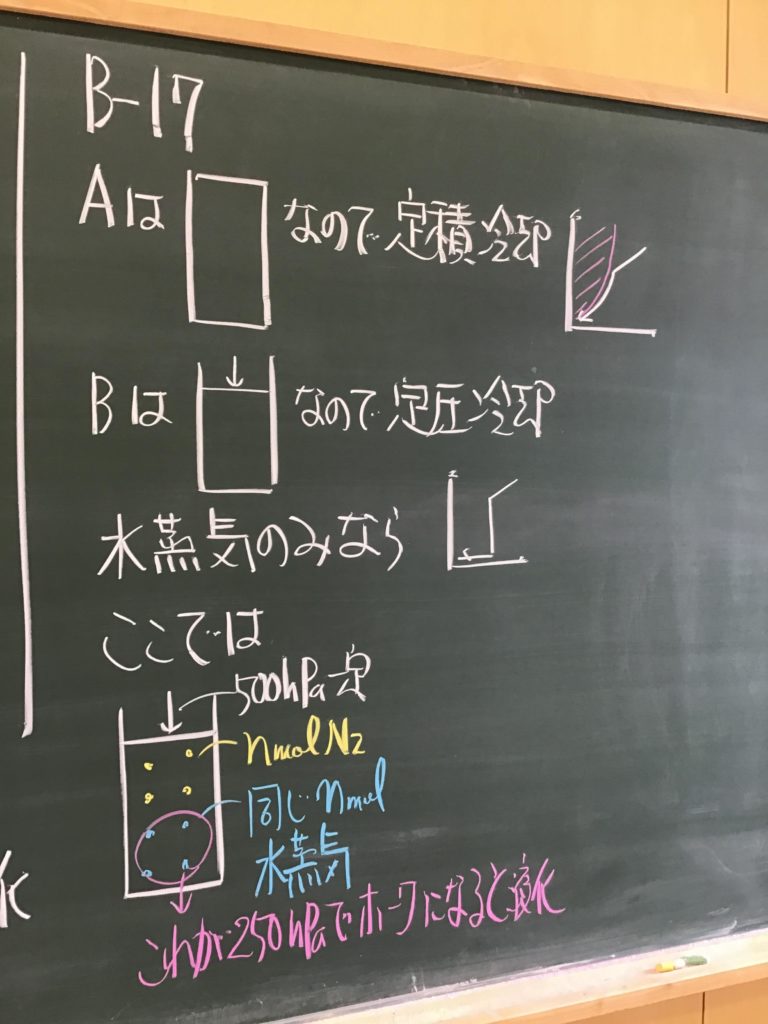 B-17
Aは なので 定積冷却
Bは なので 定圧冷却
水蒸気のみなら
ここでは
500hPa 一定
nmol N2
同じ nmol
水蒸気
これが250hPaでホーワになると液化
化